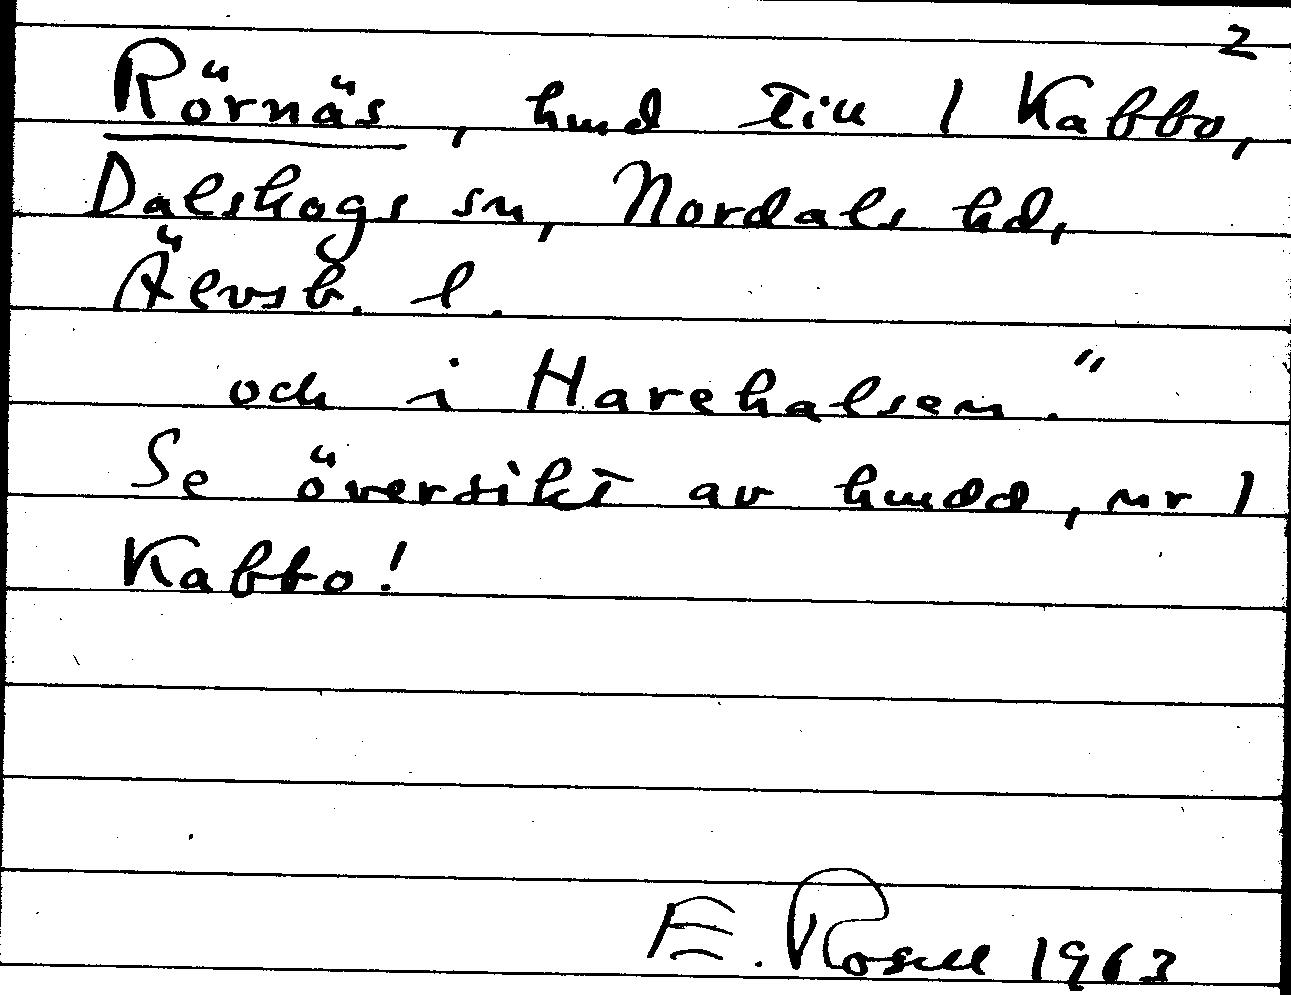 2
Rörnäs, hmd till 1 Kabbo,
Dalskogs sn, Nordals hd,
Älvsb. l.
och i Harehalsen."
Se översikt av hmdd, nr 1
Kabbo!
E. Rosell 1963